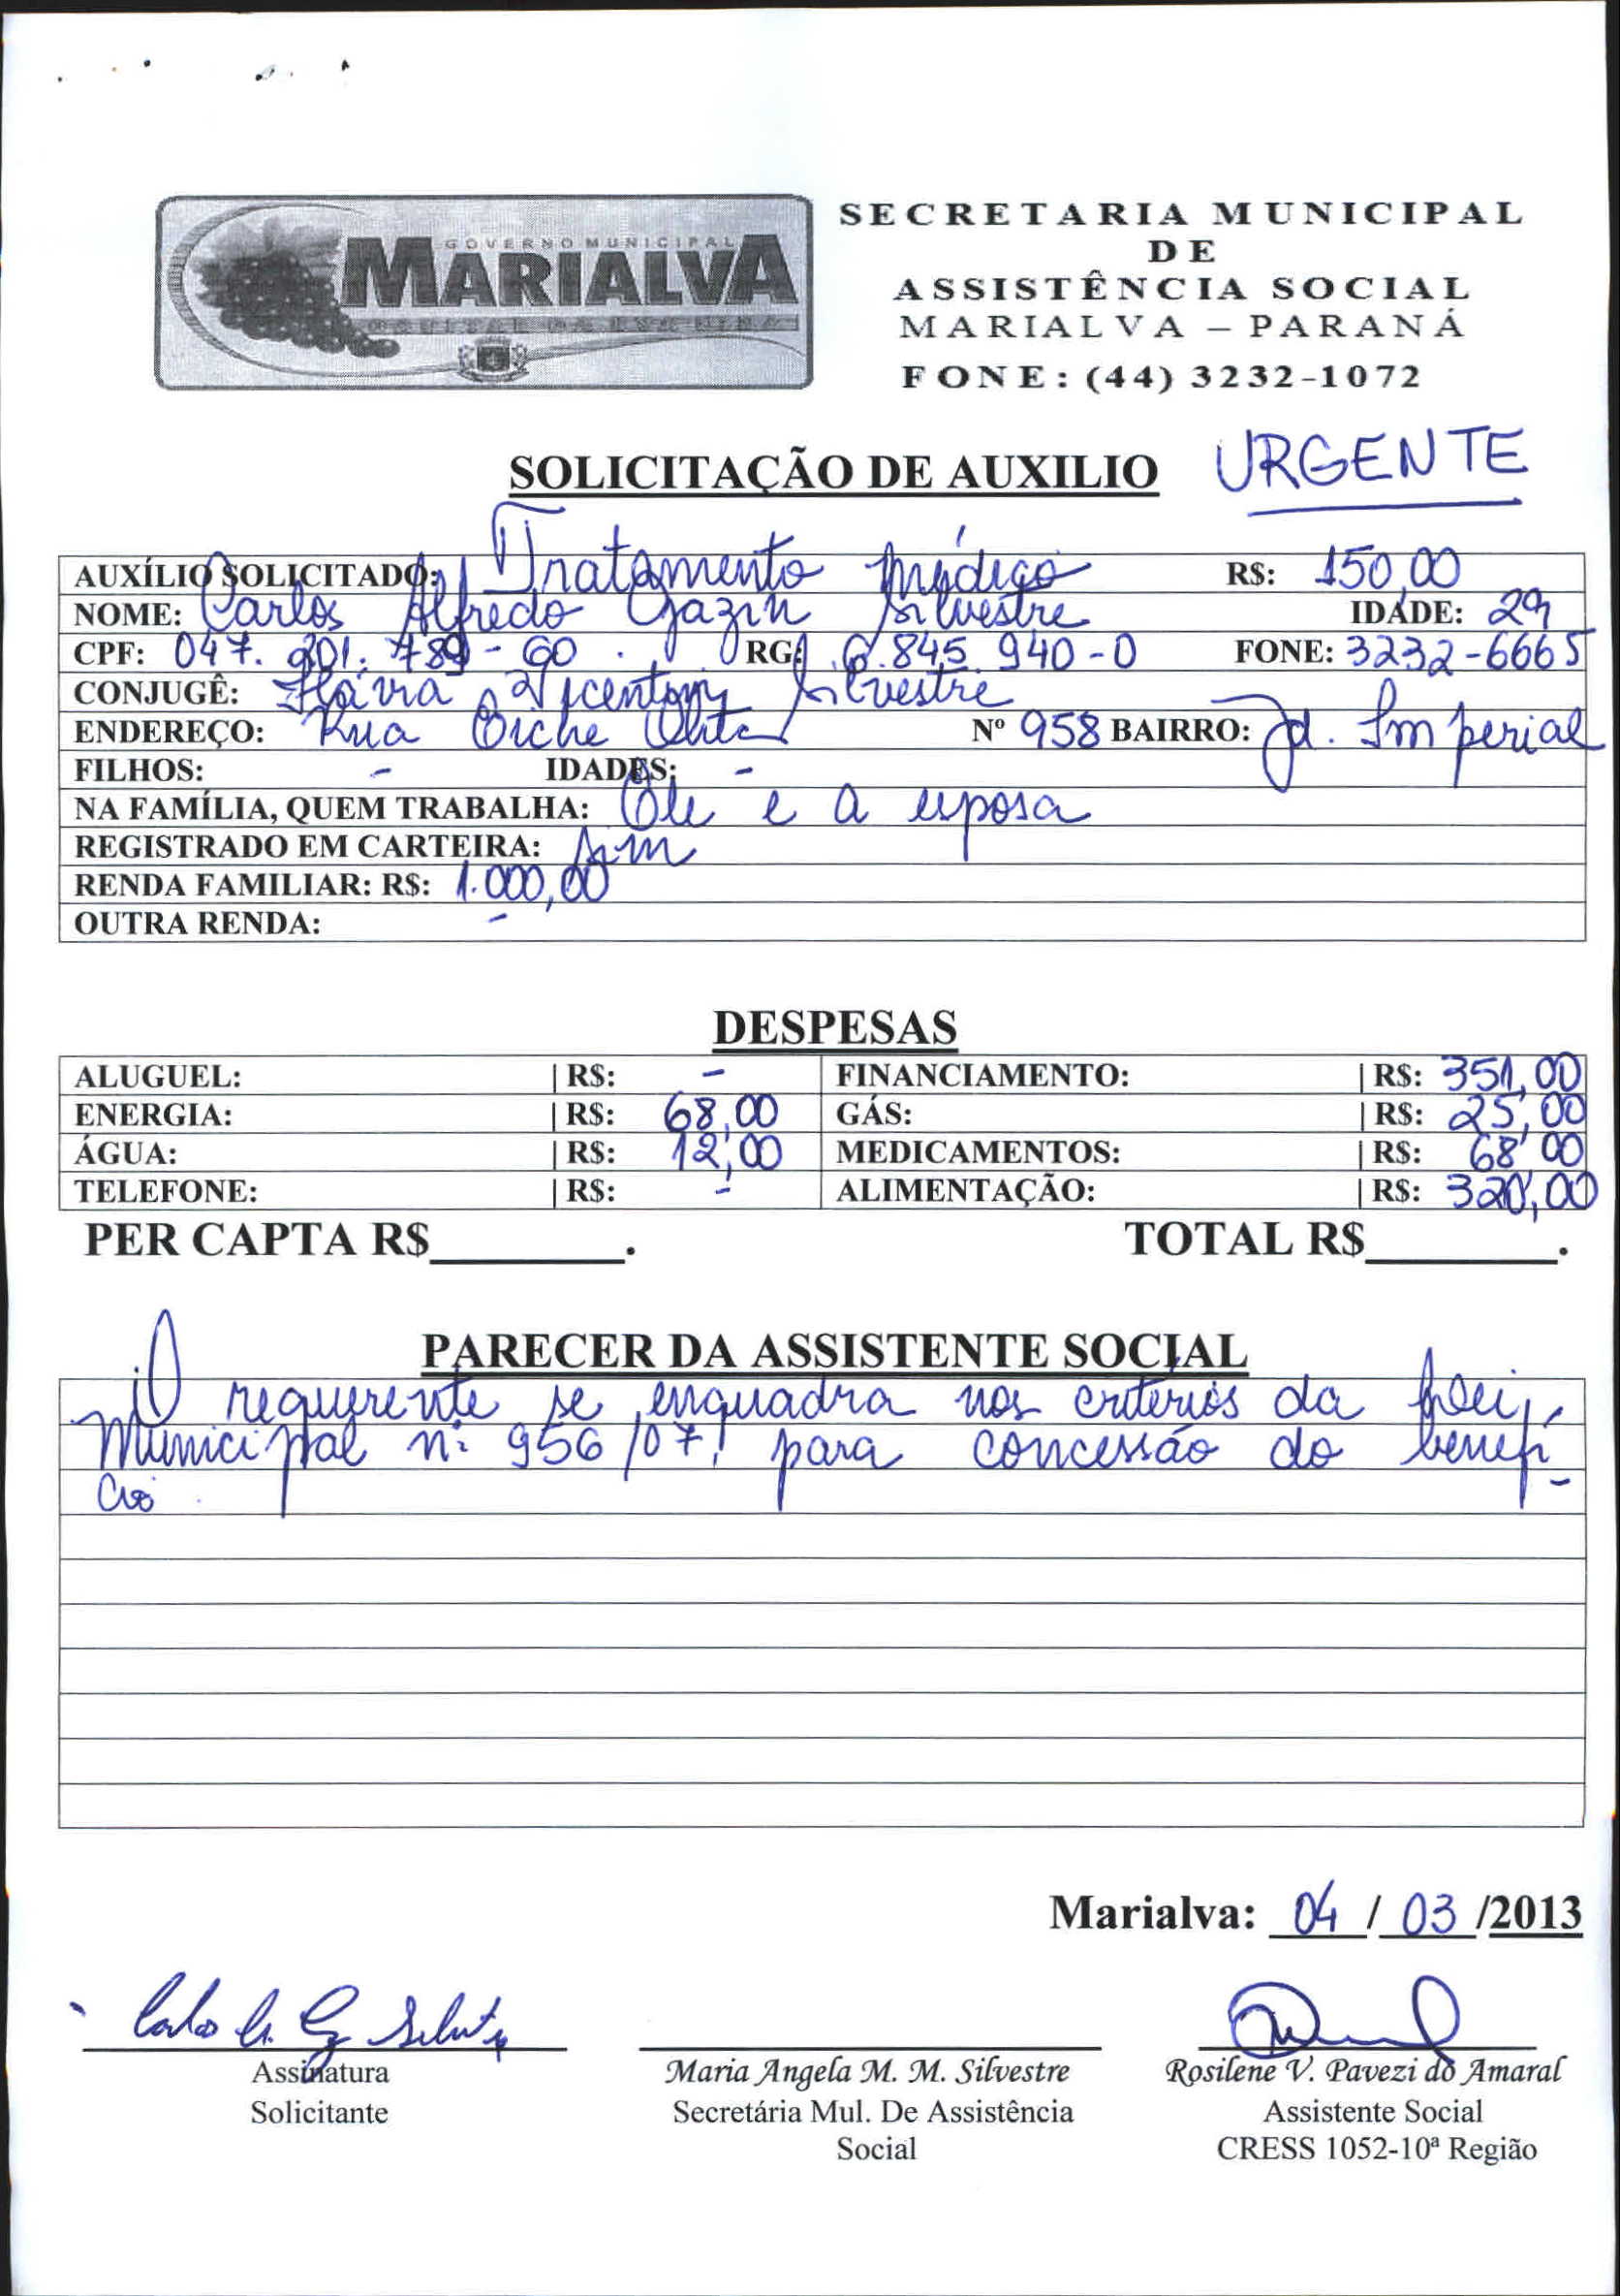 GOVERNO MUNICIPAL
MARIALVA
CAPITAL DA UVA FINA
SECRETARIA MUNICIPAL
DE
ASSISTÊNCIA SOCIAL
MARIALVA – PARANÁ
FONE: (44) 3232-1072
SOLICITAÇÃO DE AUXILIO URGENTE
AUXÍLIO SOLICITADO: Tratamento médico R$: 150,00
NOME: Carlos Alfredo Gazin Silvestre IDADE: 29
CPF: 047. 789-60 RG: 6.845.940-0 FONE: 3232-6665
CONJUGÊ: Flávia Vicentom Silvestre
ENDEREÇO: Rua Nº 958 BAIRRO: Jd. Imperial
FILHOS: - IDADES: -
NA FAMÍLIA, QUEM TRABALHA: Ele e a esposa
REGISTRADO EM CARTEIRA: Sim
RENDA FAMILIAR: R$: 1.000,00
OUTRA RENDA: -
DESPESAS
ALUGUEL: | R$: - FINANCIAMENTO: | R$: 351,00
ENERGIA: | R$: 68,00 GÁS: | R$: 25,00
ÁGUA: | R$: 12,00 MEDICAMENTOS: | R$: 68,00
TELEFONE: | R$: - ALIMENTAÇÃO: | R$: 320,00
PER CAPTA R$________. TOTAL R$________.
PARECER DA ASSISTENTE SOCIAL
O requerente se enquadra nos critérios da Lei
Municipal nº 956/07, para concessão do benefí-
cio.
Marialva: 04 / 03 /2013
Assinatura
Solicitante
Maria Angela M. M. Silvestre
Secretária Mul. De Assistência
Social
Rosilene V. Pavezi do Amaral
Assistente Social
CRESS 1052-10ª Região